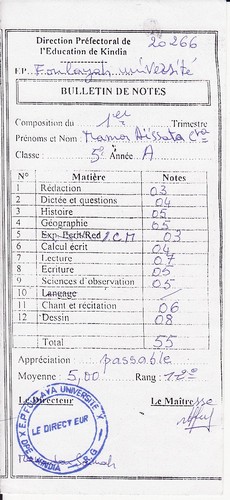 Direction Préfectoral de
l'Education de Kindia
20266
E.P. Foulayah université
BULLETIN DE NOTES
Composition du 1er Trimestre
Prénoms et Nom: Mama Aïssata Cra
Classe: 5e Année A
N° Matière Notes
1 Rédaction 03
2 Dictée et questions 04
3 Histoire 05
4 Géographie 05
5 Exp. Ecrit/Red ECM 03
6 Calcul écrit 04
7 Lecture 07
8 Ecriture 05
9 Sciences d'observation 05
10 Langage
11 Chant et récitation 06
12 Dessin 08
Total 55
Appréciation passable
Moyenne: 5,00 Rang: 12e
Le Directeur Le Maître sse
E.P. FOULAYA UNIVERSITE
LE DIRECTEUR
KINDIA R.G